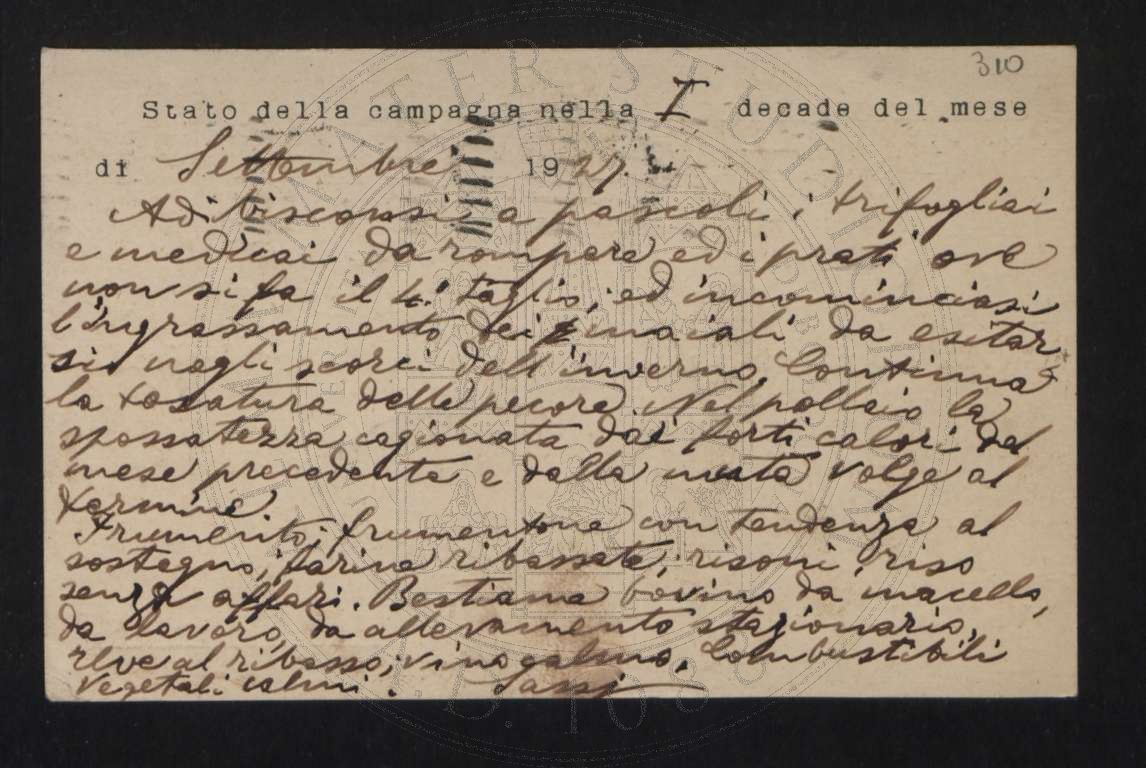 310
Stato della campagna nella I decade del mese
di Settembre 1927.
Adibisconsi a pascoli i trifogliai
e medicai da rompere ed i prati ove
non si fa il 4º taglio; ed incominciasi
l'ingrassamento dei maiali da esitar
si negli scorci dell'inverno. Continua
la tosatura delle pecore. Nel pollaio la
spossatezza cagionata dai forti calori del
mese precedente e dalla muta volge al
termine.
Frumento, frumentone con tendenza al
sostegno, farine ribassate; risoni, riso
senza affari. Bestiame bovino da macello,
da lavoro, da allevamento stazionario,
uve al ribasso; vino calmo. Combustibili
vegetali calmi. Sassi